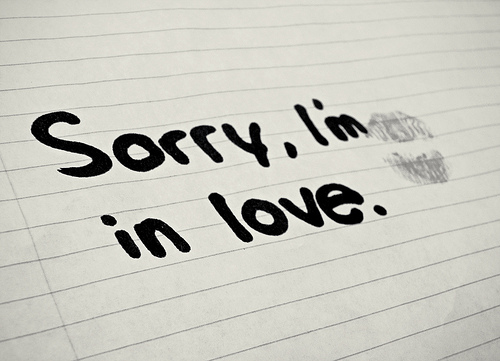 Sorry, I'm
in love.